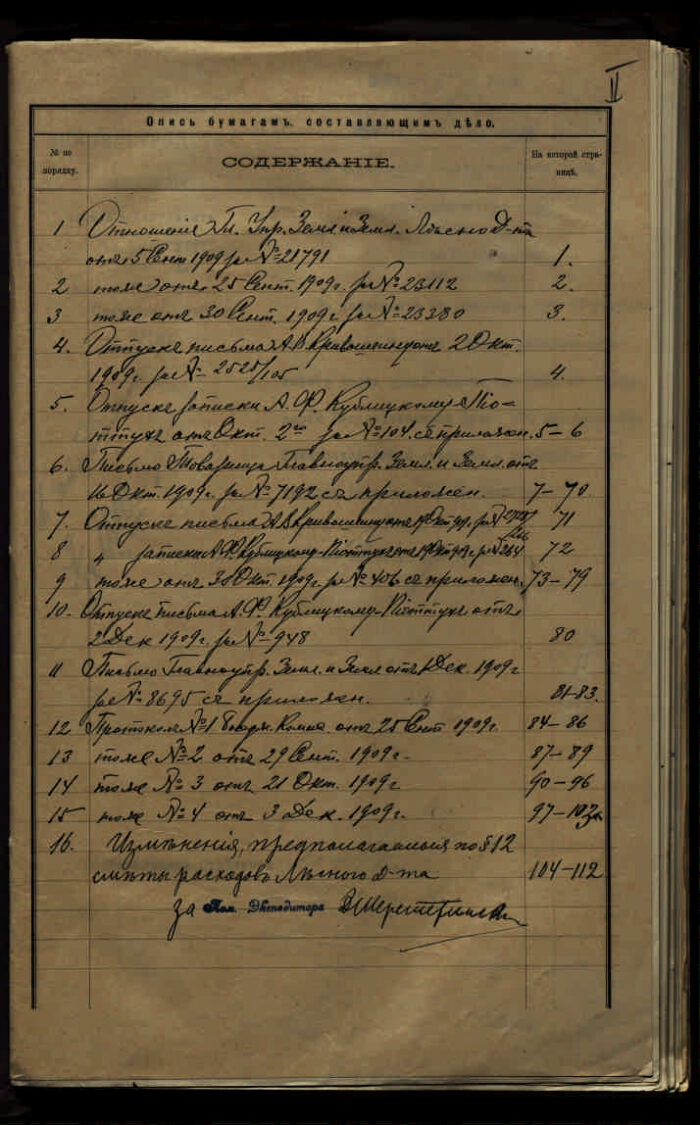 II
Опись бумагамъ, составляющимъ дѣло.
№ по порядку.
СОДЕРЖАНІЕ.
На которой страницѣ.
1 Отношеніе Гл. Упр. Земл. и Земл. Лѣсно Д-та
отъ 5 Сент 1909 за № 21791 1.
2 тоже отъ 25 Сент. 1909 г. за № 23112 2.
3 тоже отъ 30 Сент. 1909 г за № 23380 3.
4. Отпускъ письма А. В. Кривошеину отъ 2 Окт.
1909 г. за № 2525/105 4.
5. Отпускъ записки А. Ф. Кублицкому-Піо-
ттухъ отъ Окт. 2го за № 104 съ приложен. 5-6
6. Письмо Товарища Главноупр. Земл. и Земл. отъ
16 Окт. 1909 г. за № 7192 съ приложен. 7-70
7. Отпускъ письма А. В. Кривошеину отъ Окт за № 71
8 " записки А. Ф. Кублицкому-Піоттухъ отъ Окт за № 264 72
9 тоже отъ 30 Окт. 1909 г за № 406 съ приложен. 73-79
10. Отпускъ письма А. Ф. Кублицкому-Піоттухъ отъ
2 Дек 1909 г. за № 948 80
11 Письмо Главноупр. Земл. и Земл отъ Дек. 1909 г
за № 8695 съ приложен. 81-83.
12 Протоколъ № 1 Комис. отъ 25 Сент 1909 г. 84-86
13 тоже № 2 отъ 29 Сент. 1909 г. 87-89
14 тоже № 3 отъ 21 Окт. 1909 г 90-96
15 тоже № 4 отъ 3 Дек. 1909 г. 97-103
16. Измѣненія, предполагаемыя по § 12
смѣты расходовъ Лѣсного Д-та 104-112
за Пом. Экспедитора